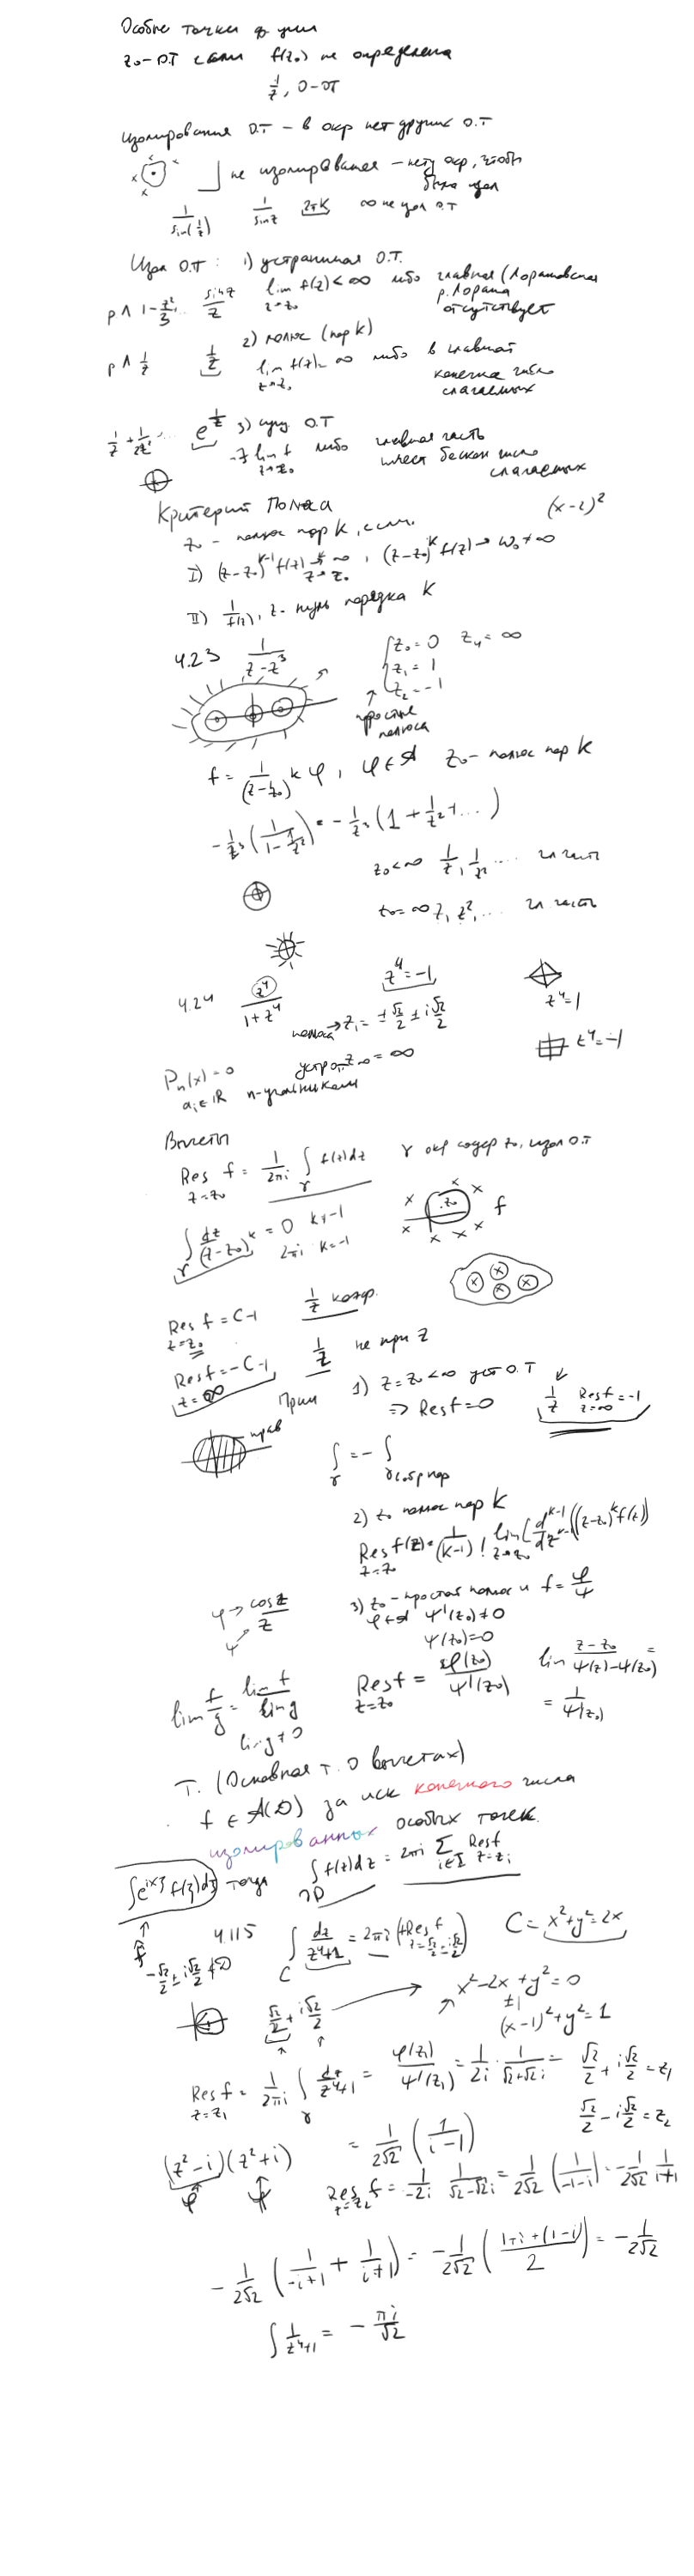 Особые точки
z₀ – О.Т если f(z₀) не определена
1/z, 0 – ОТ
изолированная О.Т – в окр нет других О.Т
не изолированная – нету окр, чтобы
была изол
1/sin(1/z) 1/sin z 2πk ∞ не изол О.Т
Изол О.Т: 1) устранимая О.Т.
sin z/z lim f(z) < ∞ либо главная
z→z₀ р. Лорана
отсутствует
2) полюс (пор k)
рЛ 1/z 1/z lim f(z) = ∞ либо в главной
z→z₀ конечное число
слагаемых
e^(1/z) 3) сущ О.Т
lim f либо главная часть
z→z₀ имеет бескон число
слагаемых
Критерий Полюса (x-2)²
z₀ – полюс пор k, если
I) (z-z₀)^(k-1) f(z) → ∞, (z-z₀)^k f(z) → w₀ ≠ ∞
z→z₀
II) 1/f(z), z – нуль порядка k
4.23 1/(z-z³) z₀ = 0 z₄ = ∞
z₁ = 1
z₂ = -1
простые
полюса
f = 1/(z-z₀)^k φ, φ ∈ A z₀ – полюс пор k
-1/z³ (1/(1-1/z²)) = -1/z³ (1 + 1/z² + ...)
z₀ < ∞ 1/z, 1/z² ... гл часть
z₀ = ∞ z, z², ... гл часть
4.24 z⁴/(1+z⁴) z⁴ = -1
z⁴ = 1
полюса → z₁ = ±√2/2 ± i√2/2
z⁴ = -1
устр z = ∞
Pₙ(x) = 0
aᵢ ∈ ℝ n-угольником
Вычеты
Res f = 1/2πi ∫ f(z)dz γ окр содер z₀, изол О.Т
z=z₀ γ
∫ dz/(z-z₀)^k = 0 k≠-1
γ 2πi k=-1
× × z₀ f
Res f = C-1 1/z коэф.
z=z₀
Res f = -C-1 1/z не при z
z=∞
При 1) z = z₀ < ∞ уст О.Т
⇒ Res f = 0 1/z Res f = -1
z=∞
∫ = - ∫
γ γ обр пор
2) z₀ полюс пор k
Res f(z) = 1/(k-1)! lim (d^(k-1)/dz^(k-1) ((z-z₀)^k f(z))
z=z₀ z→z₀
φ → cos z/z 3) z₀ – простой полюс и f = φ/ψ
ψ φ ∈ A ψ'(z₀) ≠ 0
ψ(z₀) = 0
lim f/g = lim f/lim g Res f = φ(z₀)/ψ'(z₀) lim (z-z₀)/(ψ(z)-ψ(z₀)) =
lim g ≠ 0 z=z₀ = 1/ψ'(z₀)
Т. (Основная т. о вычетах)
f ∈ A(D) за иск конечного числа
изолированных особых точек.
∫e^(ixξ) f(ξ)dξ тогда ∫ f(z)dz = 2πi Σ Res f
∂D i∈I z=zᵢ
4.115 ∫ dz/(z⁴+1) = 2πi (+Res f) C = x²+y²=2x
C
-√2/2 ± i√2/2 ∉ D
√2/2 + i√2/2 x²-2x+y²=0
±1
(x-1)²+y²=1
Res f = 1/2πi ∫ dz/(z⁴+1) = φ(z₁)/ψ'(z₁) = 1/2i · 1/(√2+√2i) = √2/2 + i√2/2 = z₁
z=z₁ γ √2/2 - i√2/2 = z₂
(z²-i)(z²+i) = 1/2√2 (1/(i-1))
φ ψ Res f = 1/-2i 1/(√2-√2i) = 1/2√2 (1/(-1-i)) = -1/2√2 1/(i+1)
z=z₂
-1/2√2 (1/(-i+1) + 1/(i+1)) = -1/2√2 ((1+i+(1-i))/2) = -1/2√2
∫ 1/(z⁴+1) = - πi/√2